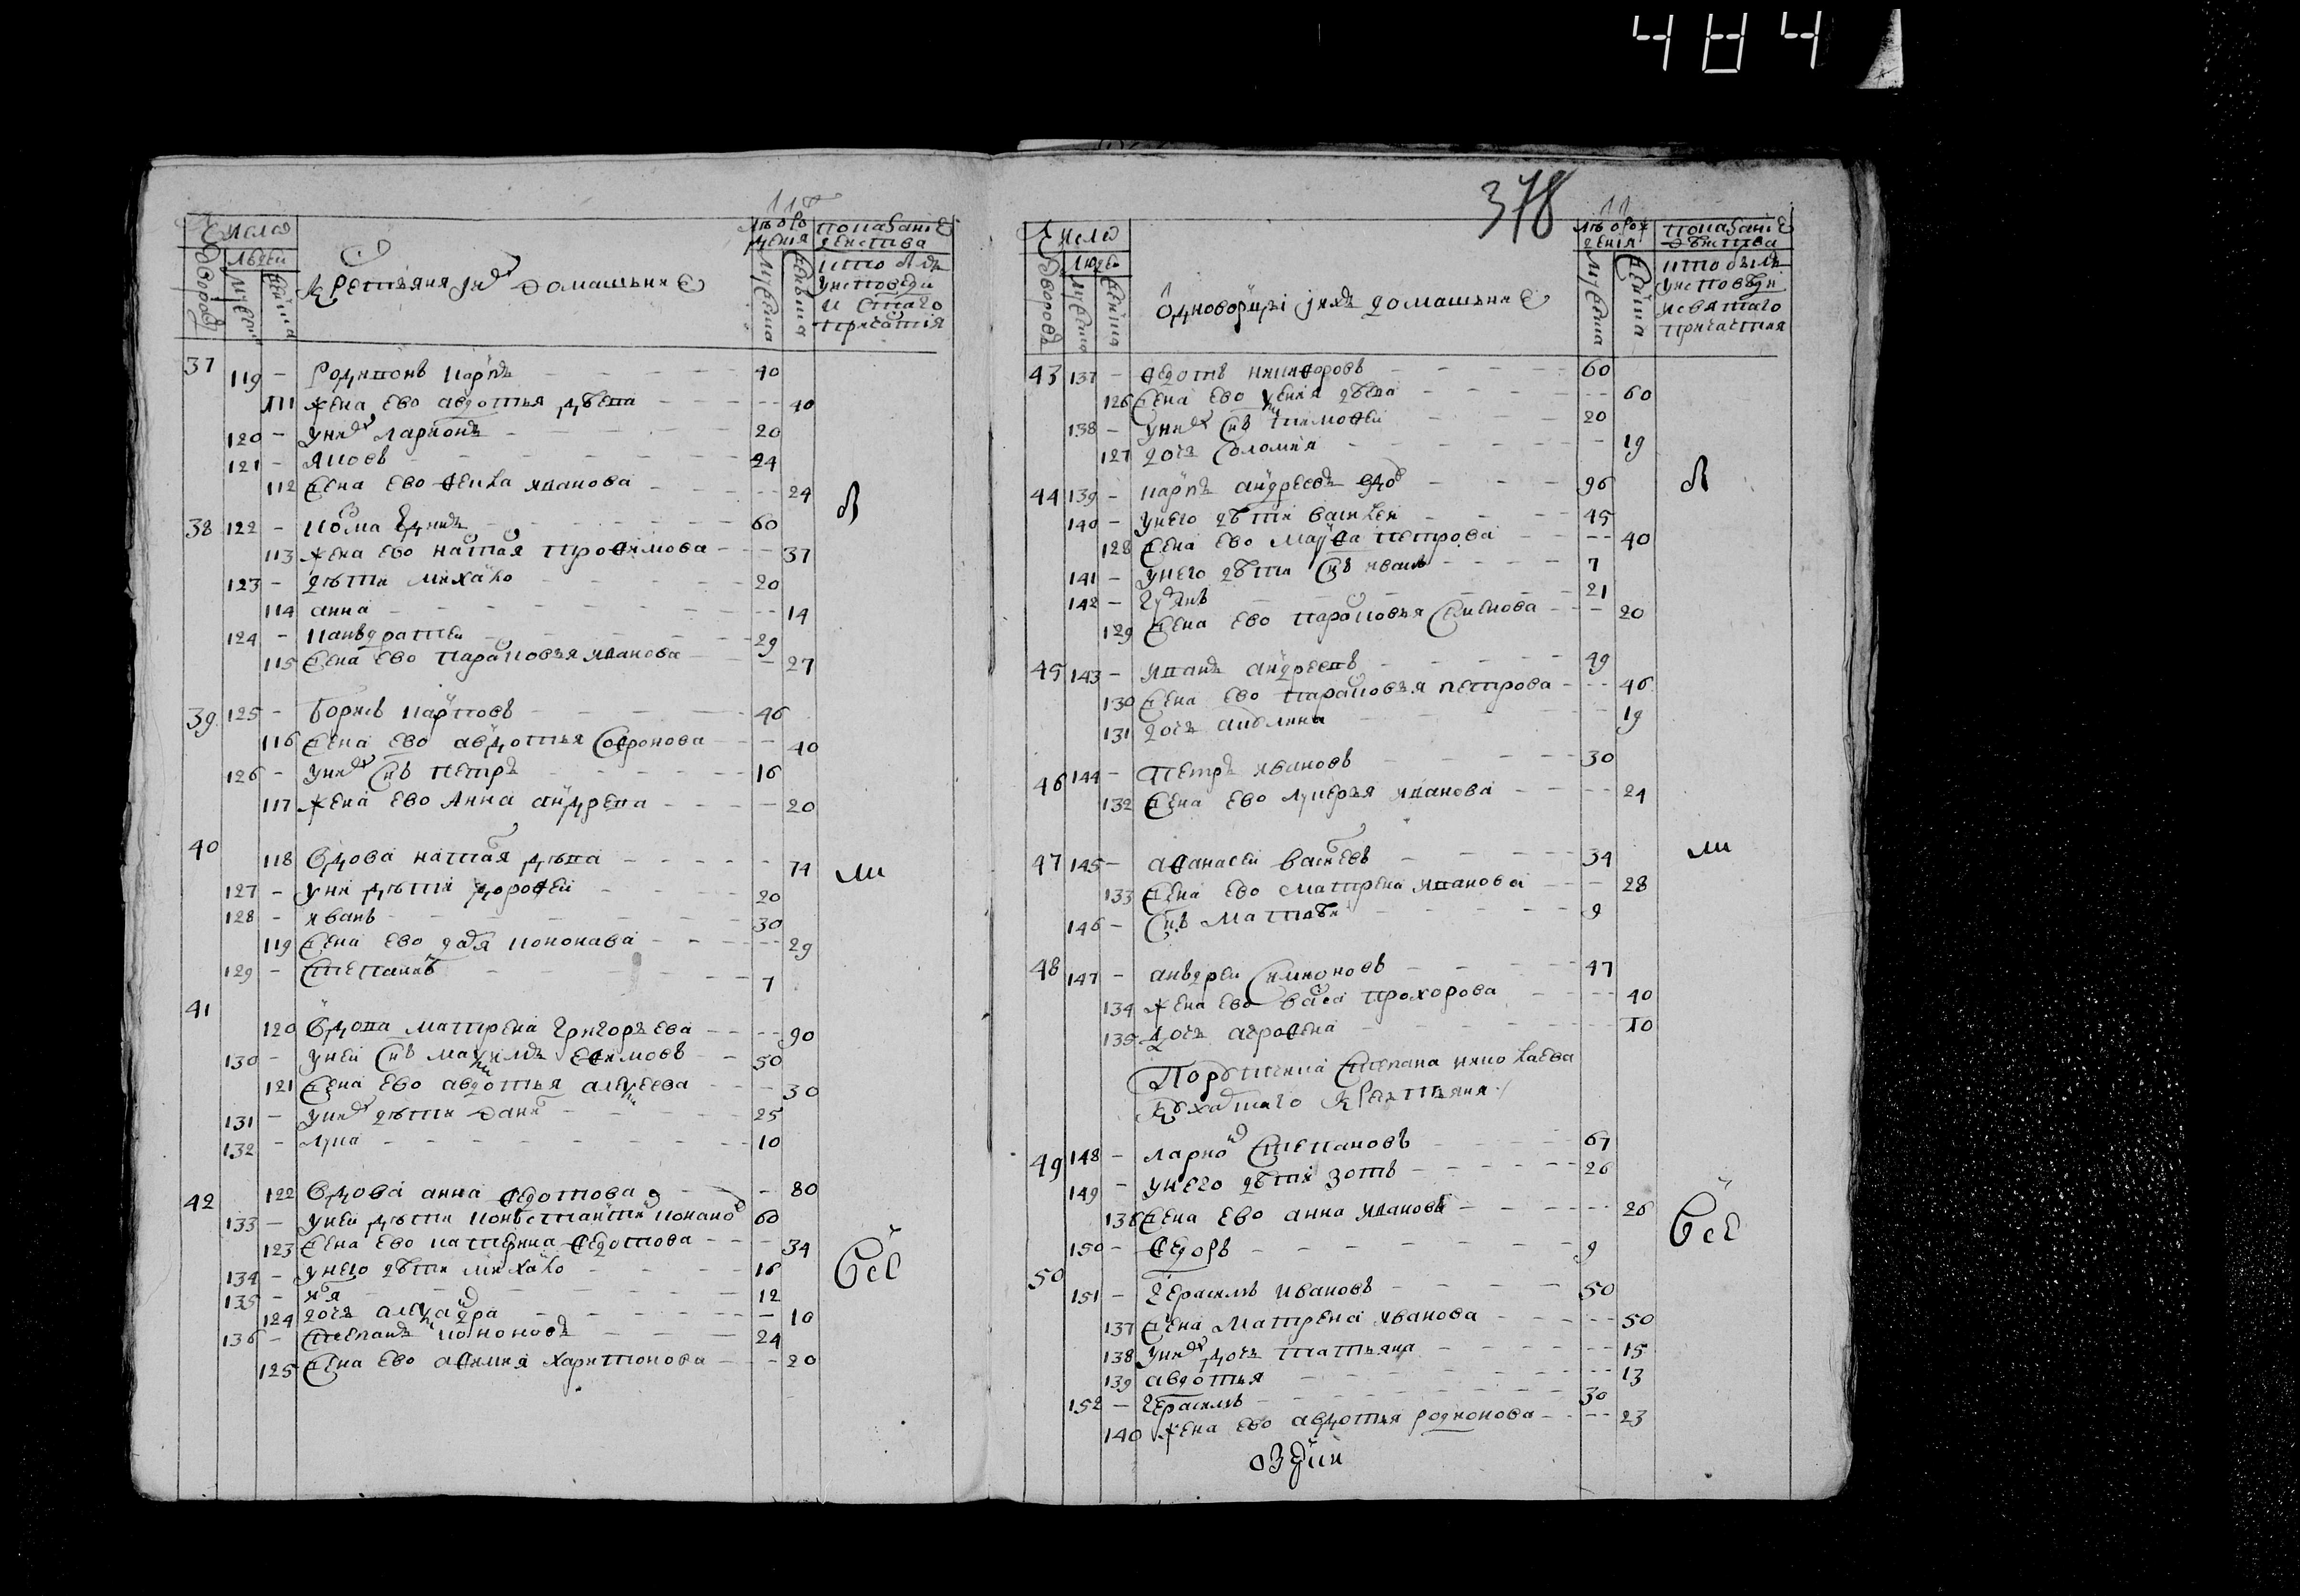 484
Число
людей
дворовъ
мужеска
женска
Крестьяня и ихъ домашьние
лѣ оро
ждения
мужеска
женска
показание
действа
кто былъ
у исповеди
и стаго
причастия
37 119 – Родионъ Карпъ 40
111 жена ево авдотья 40
120 – у них Ларионъ 20
121 – Яковъ 24
112 жена ево Фекла иванова 24
38 122 – Козма 60
113 жена ево наталя трофимова 37
123 – дѣти михаѵло 20
114 анна 14
124 – канъдратеи 29
115 жена ево парасковья иванова 27
39 125 – Борисъ Карповъ 46
116 жена ево авдотья Софронова 40
126 – у них снъ петръ 16
117 жена ево Анна андреева 20
40 118 вдова наталя 74
127 – у ни дѣти дорофеи 20
128 – иванъ 30
119 жена ево дарья кононава 29
129 – степанъ 7
41 120 вдова матрена григорьева 90
130 – у неи снъ маѯимъ ефимовъ 50
121 жена ево авдотья алеѯеева 30
131 – у них дѣти данило 25
132 – лука 10
42 122 вдова анна федотова 80
133 – у неи дѣти конъстантинъ кононо 60
123 жена ево катерина федотова 34
134 – у него дѣти михаило 16
135 – илья 12
124 дочь алеѯандра 10
136 – степанъ кононовъ 24
125 жена ево афимия харитонова 20
в
ли
все
378
Число
людеи
дворовъ
мужеска
женска
Одноворцы и ихъ домашьние
лѣ орож
дения
мужеска
женска
показание
дѣиства
кто былъ
у исповѣди
и святаго
причастия
43 137 – федотъ никифоровъ 60
126 жена ево ѯения 60
138 – у них снъ тимофеи 20
127 дочь Соломия 19
44 139 – карпъ андреевъ вдов 96
140 – у него дѣти василеи 45
128 жена ево марфа петрова 40
141 – у него дѣти снъ иванъ 7
142 – 21
129 жена ево парасковья Семенова 20
45 143 – иванъ андреевъ 49
130 жена ево парасковья петрова 46
131 дочь акулина 19
46 144 – Петръ ивановъ 30
132 жена ево лукерья иванова 24
47 145 – афанасеи васильевъ 34
133 жена ево матрена иванова 28
146 – снъ матвѣи 9
48 147 – анъдреи Симионовъ 47
134 жена ево васа прохорова 40
135 дочь агрофена 10
Порутчика Степана николаева
крестьяня
49 148 – ларион Степановъ 67
149 – у него дѣти зотъ 26
136 жена ево анна иванова 26
150 – федоръ 9
50 151 – герасимъ ивановъ 50
137 жена матрена иванова 50
138 у них дочь татьяна 15
139 авдотья 13
152 – герасимъ 30
140 жена ево авдотья родионова 23
в
ли
все